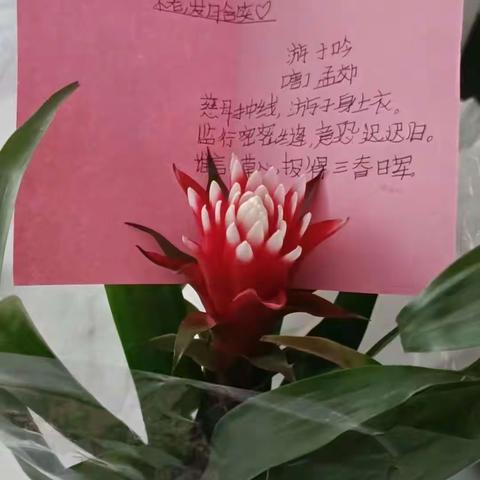 老,岁月含笑♡
游子吟
唐】孟郊
慈母手中线,游子身上衣。
临行密密缝,意恐迟迟归。
谁言寸草心,报得三春日军。